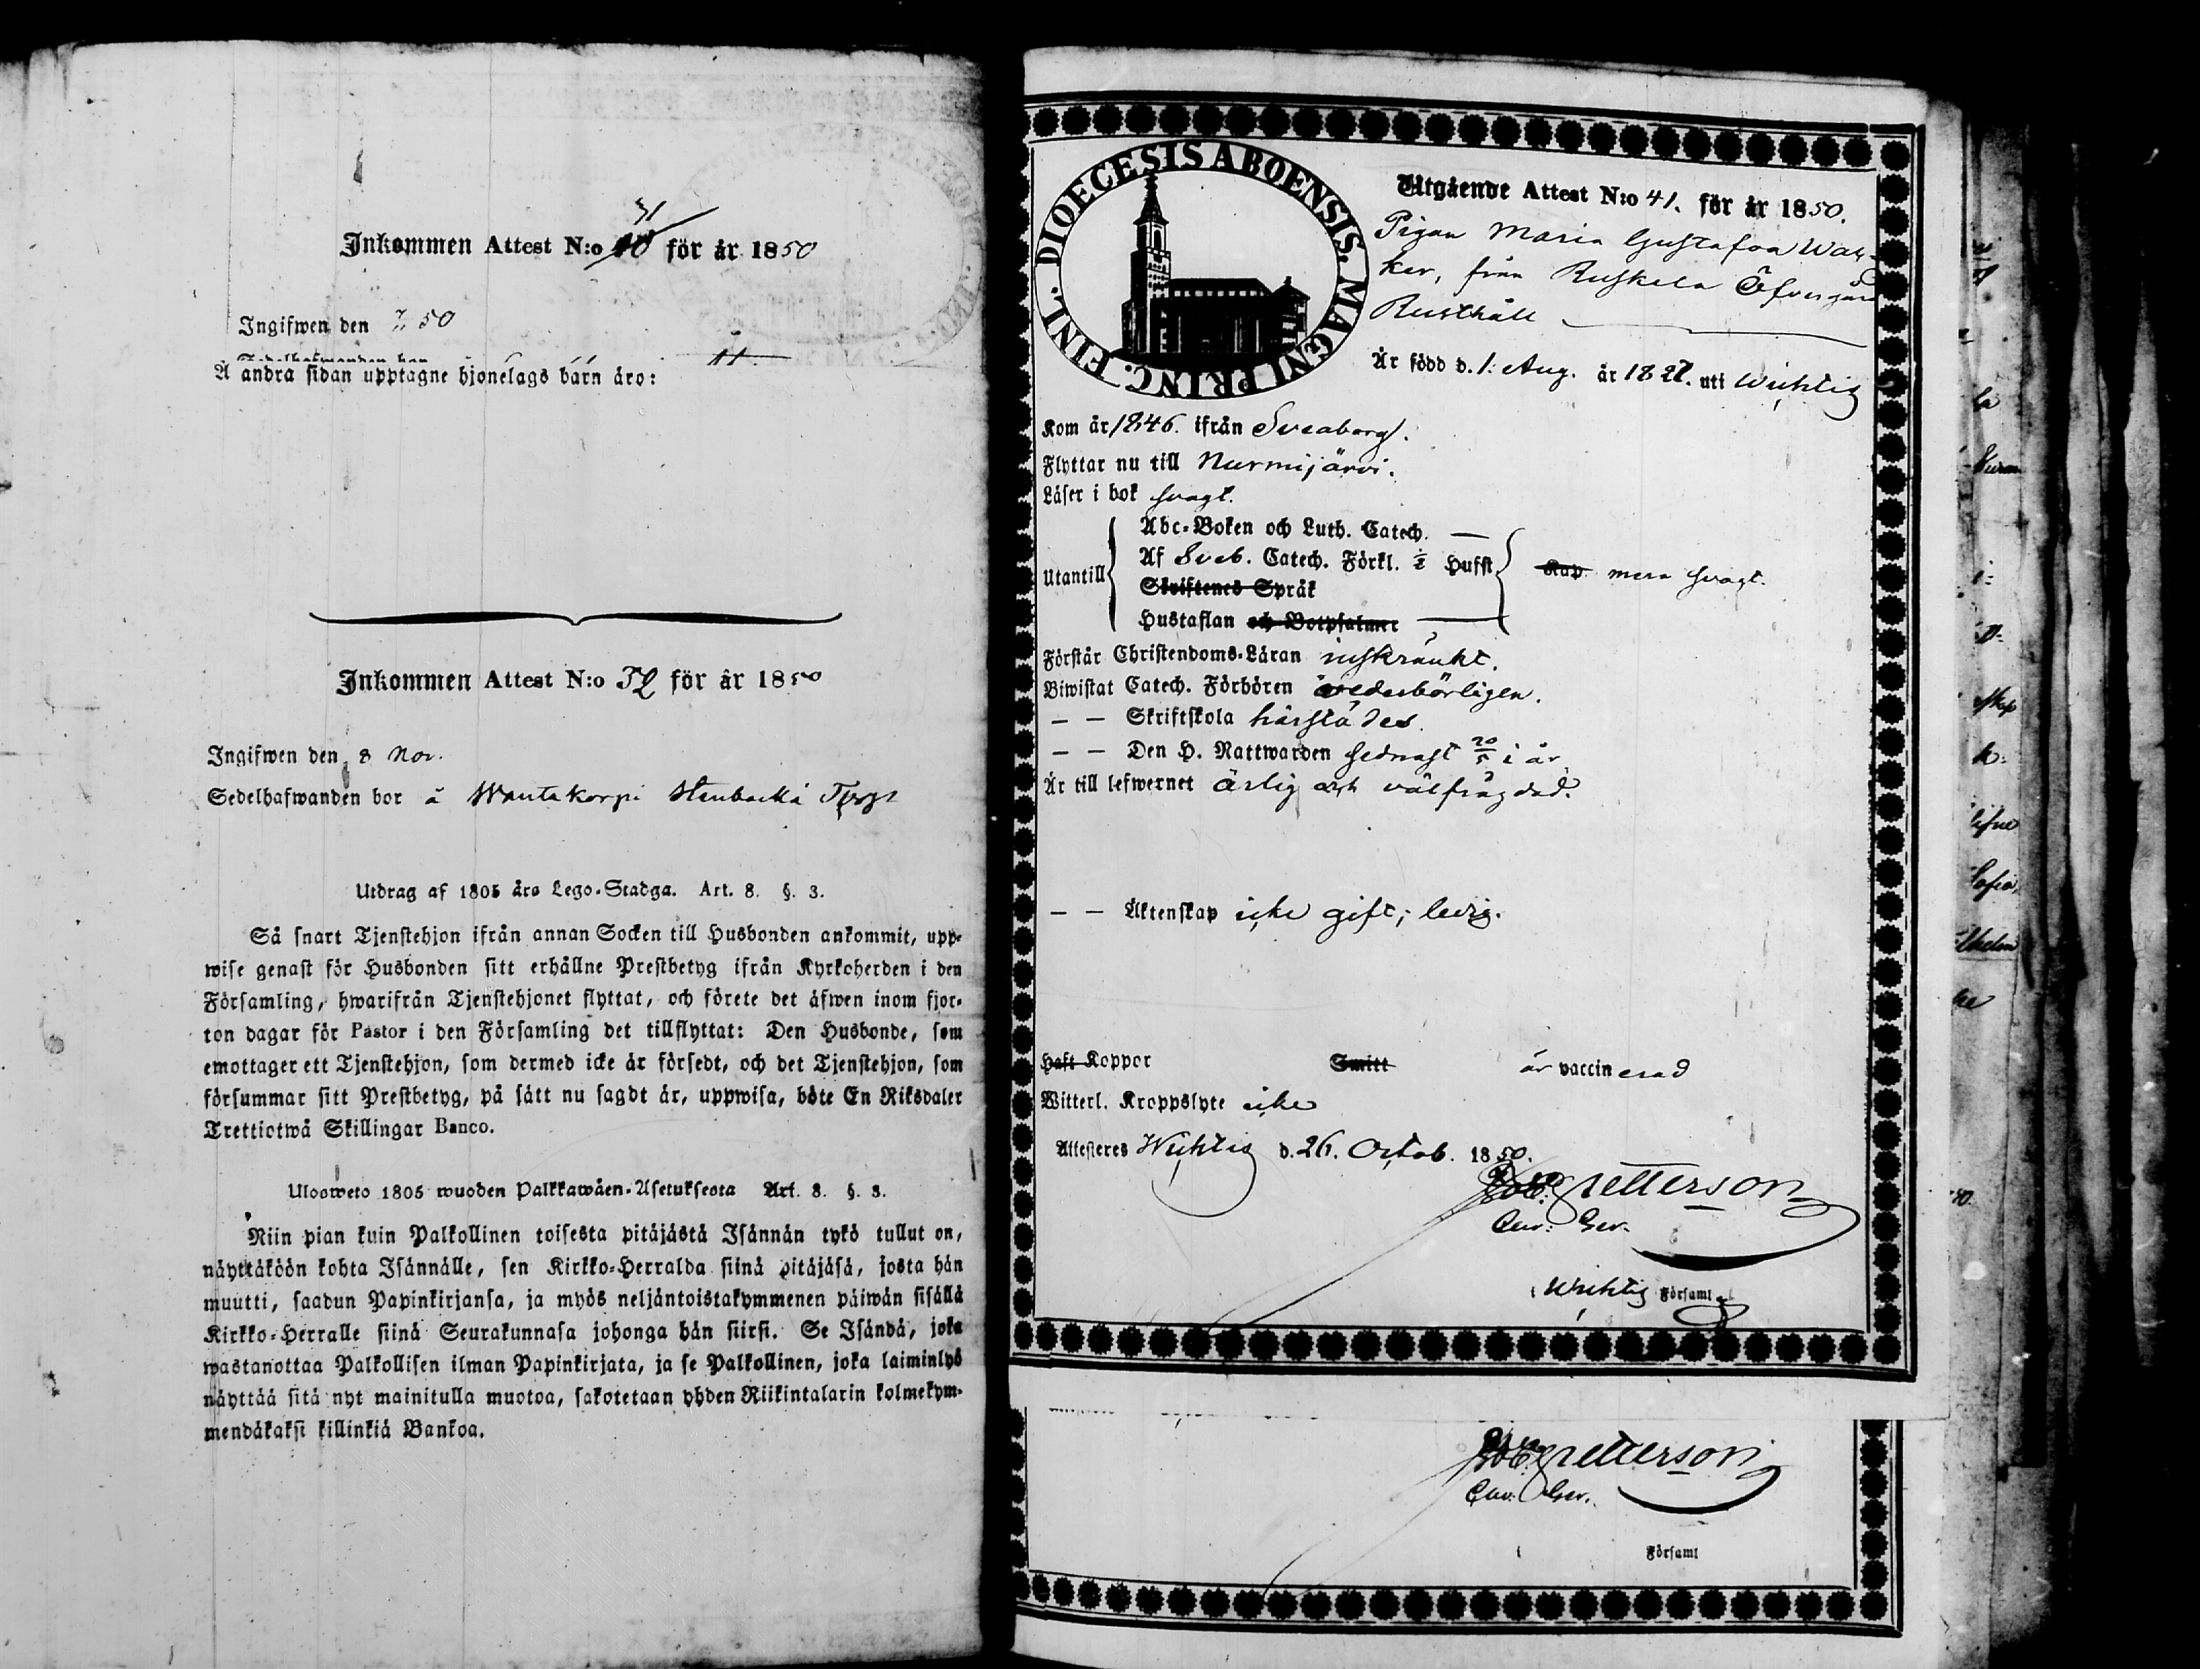 Inkommen Attest N:o 40 31 för år 1850
Ingifwen den 50
Å andra sidan upptagne hjonelags barn äro:
Inkommen Attest N:o 32 för år 1850
Ingifwen den 8 Nov.
Sedelhafwanden bor å Wantakorpi Stenbacka Torp
Utdrag af 1805 års Lego-Stadga. Art. 8. §. 3.
Så snart Tjenstehjon ifrån annan Socken till Husbonden ankommit, upp-
wise genast för Husbonden sitt erhållne Prestbetyg ifrån Kyrkoherden i den
Församling, hwarifrån Tjenstehjonet flyttat, och förete det äfwen inom fjor-
ton dagar för Pastor i den Församling det tillflyttat: Den Husbonde, som
emottager ett Tjenstehjon, som dermed icke är försedt, och det Tjenstehjon, som
försummar sitt Prestbetyg, på sätt nu sagdt är, uppwisa, böte En Riksdaler
Trettiotwå Skillingar Banco.
Ulosweto 1805 wuoden Palkkawäen-Asetuksesta Art. 8. §. 3.
Niin pian kuin Palkollinen toisesta pitäjästä Isännän tykö tullut on,
näyttäköön kohta Isännälle, sen Kirkko-Herralda siinä pitäjäsä, josta hän
muutti, saadun Papinkirjansa, ja myös neljäntoistakymmenen päiwän sisällä
Kirkko-Herralle siinä Seurakunnasa johonga hän siirsi. Se Isändä, joka
wastanottaa Palkollisen ilman Papinkirjata, ja se Palkollinen, joka laiminlyö
näyttää sitä nyt mainitulla muotoa, sakotetaan yhden Riikintalarin kolmekym-
mendäkaksi killinkiä Bankoa.
DIOECESIS ABOENSIS. MAGNI PRINC. FINL.
Utgående Attest N:o 41. för år 1850.
Pigan Maria Gustafva Wac-
ker, från Ruskela Öfvergård
Rusthåll
Är född d. 1. Aug. år 1827. uti Wichtis
Kom år 1846. ifrån Sveaborg.
Flyttar nu till Nurmijärvi.
Läser i bok svagt.
Utantill
Abc-Boken och Luth. Catech. —
Af Sveb. Catech. Förkl. ½ Hufst Kap. mera svagt.
Skriftenes Språk
Hustaflan och Botpsalmer —
Förstår Christendoms-Läran inskränkt.
Biwistat Catech. Förhören vederbörligen.
— — Skriftskola härstädes.
— — Den H. Nattwarden sednast 20/5 i år
Är till lefwernet ärlig och välfrägdad.
— — Äktenskap icke gift; ledig.
Haft Koppor Smitt är vaccinerad
Witterl. Kroppslyte icke
Attesteres Wichtis d. 26. Octob. 1850.
Petterson
i Wichtis Församl
Petterson
i Församl